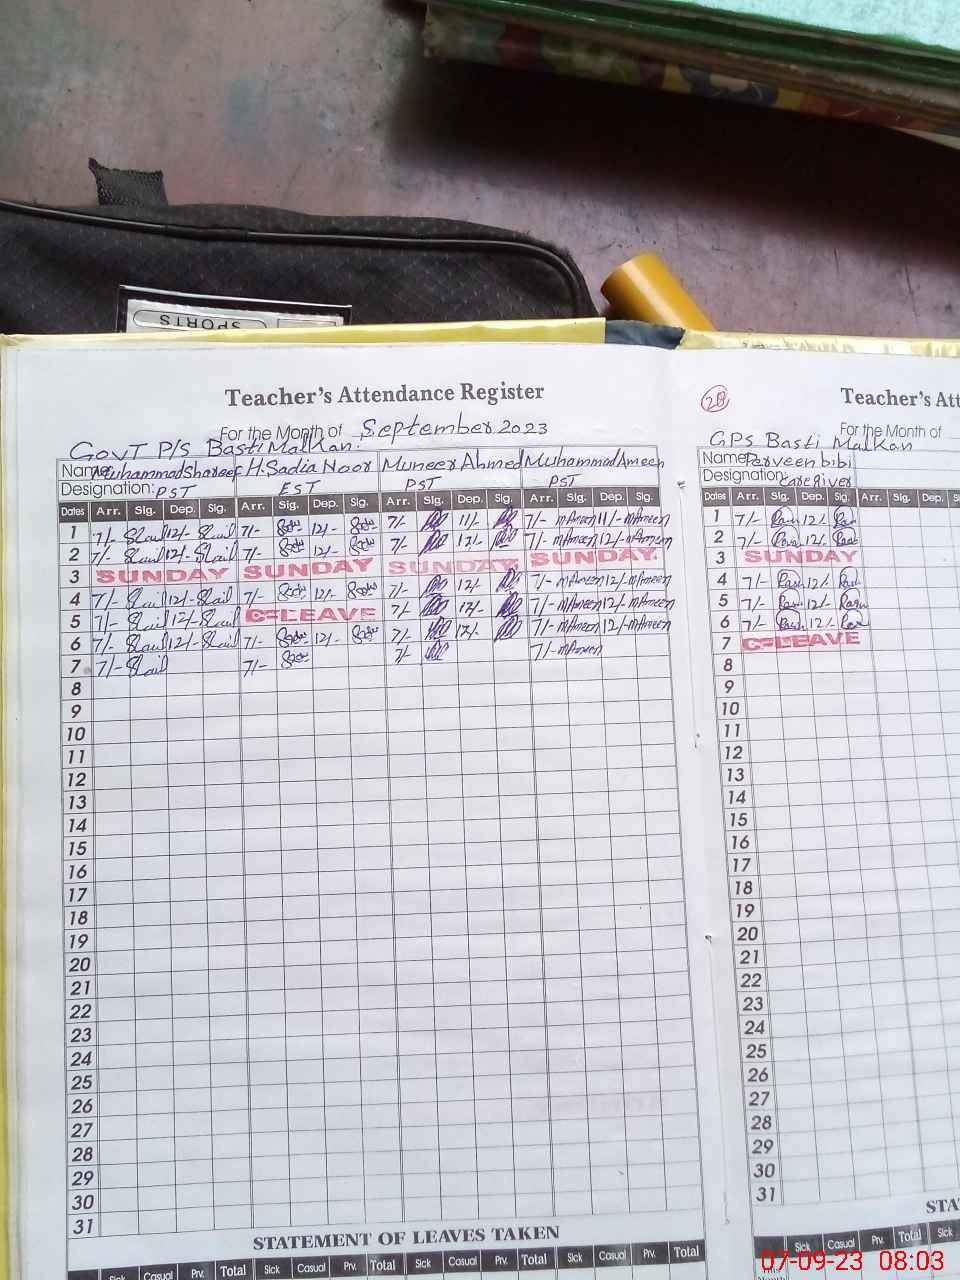 SPORTS
Teacher's Attendance Register
For the Month of September 2023
Govt P/S Basti Malkan
Name: Muhammad Shareef H. Sadia Noor Muneer Ahmed Muhammad Ameen
Designation: PST EST PST PST
Dates Arr. Sig. Dep. Sig. Arr. Sig. Dep. Sig. Arr. Sig. Dep. Sig. Arr. Sig. Dep. Sig.
1 7/- 12/- 7/- 12/- 7/- 11/- 7/- mAmeen 11/- mAmeen
2 7/- 12/- 7/- 12/- 7/- 12/- 7/- mAmeen 12/- mAmeen
3 SUNDAY SUNDAY SUNDAY SUNDAY
4 7/- 12/- 7/- 12/- 7/- 12/- 7/- mAmeen 12/- mAmeen
5 7/- 12/- C=LEAVE 7/- 12/- 7/- mAmeen 12/- mAmeen
6 7/- 12/- 7/- 12/- 7/- 12/- 7/- mAmeen 12/- mAmeen
7 7/- 7/- 7/- 7/- mAmeen
8
9
10
11
12
13
14
15
16
17
18
19
20
21
22
23
24
25
26
27
28
29
30
31
STATEMENT OF LEAVES TAKEN
Sick Casual Prv. Total Sick Casual Prv. Total Sick Casual Prv. Total Sick Casual Prv. Total
28
Teacher's Att
For the Month of
GPS Basti Malkan
Name: Parveen bibi
Designation: Care Giver
Dates Arr. Sig. Dep. Sig. Arr. Sig. Dep.
1 7/- 12/-
2 7/- 12/-
3 SUNDAY
4 7/- 12/-
5 7/- 12/-
6 7/- 12/-
7 C=LEAVE
8
9
10
11
12
13
14
15
16
17
18
19
20
21
22
23
24
25
26
27
28
29
30
31
STA
Sick Casual Prv. Total Sick
This
07-09-23 08:03